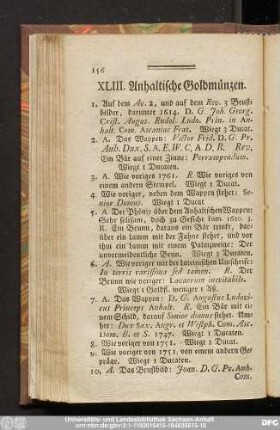 156
XLIII. Anhaltische Goldmünzen.
1. Auf dem Av. 2, und auf dem Rev. 3 Brust-
bilder, darunter 1614. D. G. Joh. Georg.
Crist. Augus. Rudol. Ludo. Prin. in An-
halt. Com. Ascaniae Frat. Wiegt 1 Ducat.
2. A. Das Wappen: Victor Frid. D. G. Pr.
Anh. Dux. S. A. E. W. C. A. D. B. Rev.
Ein Bär auf einer Zinne: Perrumpendum.
Wiegt 1 Ducaten.
3. A. Wie voriges 1761. R Wie voriges von
einem andern Stempel. Wiegt 1 Ducat.
4 Wie voriger, neben dem Wappen stehet: Se-
nior Domus. Wiegt 1 Ducat
5 A Der Phönix über dem Anhaltischen Wappen:
Sehr seltsam, doch zu Gesicht kam. 1620 3.
R. Ein Brunn, daraus ein Bär trinkt, dar-
über ein Lamm mit der Fahne stehet, und vor
ihm ein Lamm mit einem Palmzweige: Der
unvermeidentliche Brun. Wiegt 3 Ducaten.
6. A. Wie voriger mit der lateinischen Umschrift:
In terris rarissima sed tamen. R. Der
Brunn wie voriger: Lavacrum inevitabile.
Wiegt 1 Goldfl. weniger 1 Aß.
7. A. Das Wappen: D. G. Augustus Ludovi-
cus Princeps Anhalt. R. Ein Bär mit ei-
nem Schild, worauf Senior domus stehet. Um-
her: Dux Sax. Angr. et Westph. Com. Asc.
Dom. B. et S. 1747. Wiegt 1 Ducaten.
8. Wie voriger von 1751. Wiegt 1 Ducaten.
9. Wie voriger von 1751, von einem andern Ge-
präge. Wiegt 1 Ducaten.
10. A Das Brustbild: Joan. D. G. Pr. Anh.
Com.
Universitäts- und Landesbibliothek Sachsen-Anhalt
DFG